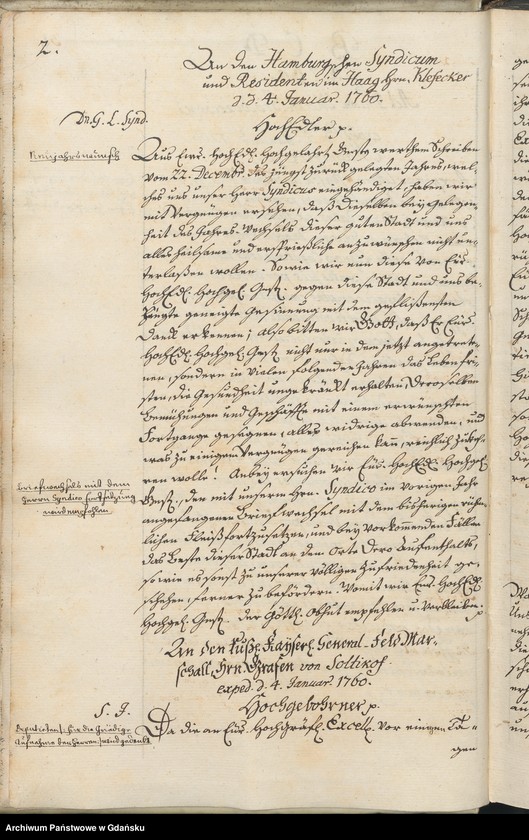 2.
An den Hamburgschen Syndicum
und Residenten im Haag Hrn. Klefecker
d. d. 4. Januar. 1760.
Dn. G. L. Synd.
HochEdler p.
Neujahrswunsch
Aus Eurs. HochEdl. Hochgelahrt. werthem Schreiben
vom 22. Decembr. des jüngst zurück gelegten Jahres, wel-
ches uns unser Herr Syndicus eingehändiget, haben wir
mit Vergnügen ersehen, daß Dieselben bey Gelegen-
heit des Jahres-Wechsels dieser guten Stadt und uns
alles heilsame und ersprießliche anzuwünschen nicht un-
terlaßen wollen. So wie wir nun diese von Eur.
HochEdl. Hochgel. gegen diese Stadt und uns be-
zeugte geneigte Gesinnung mit dem geflißensten
Danck erkennen; also bitten wir Gott, daß Er Eur.
HochEdl. Hochgel. nicht nur in dem jetzt angetrete-
nen, sondern in vielen folgenden Jahren das Leben fri-
sten, die Gesundheit ungekränkt erhalten, Deroselben
Bemühungen und Geschäffte mit einem erwünschten
Fortgange gesegnen, alles widrige abwenden, und
was zu einigem Vergnügen gereichen kan, reichlich zukeh-
ren wolle! Anbey ersuchen wir Eur. HochEdl. Hochgel.
Briefwechsels mit dem
Herrn Syndico Fortsetzung
wird empfohlen.
den mit unserm Hrn. Syndico im vorigen Jahr
angefangenen Briefwechsel mit dem bisherigen rühm-
lichen Fleiß fortzusetzen, und bey vorkomenden Fällen
das Beste dieser Stadt an dem Orte Dero Aufenthalts,
so wie es sonst zu unserer völligen Zufriedenheit ge-
schehen, ferner zu befördern. Womit wir Eur. HochEdl.
Hochgel. der Göttl. Obhut empfehlen u. verbleiben.
An den Kayserl. General-Feld Mar-
schall, Hrn. Grafen von Soltikof.
exped. d. 4. Januar. 1760.
S. J.
Hochgebohrner p.
für die Gnädige
Aufnahme den Herren
Da die an Eur. Hochgräfl. Excell. vor einigen Ta-
gen
Archiwum Państwowe w Gdańsku